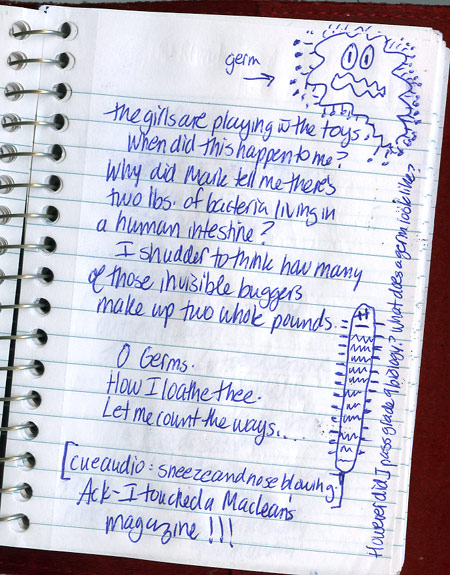 germ
the girls are playing w̄ the toys.
When did this happen to me?
Why did Mark tell me there's
two lbs. of bacteria living in
a human intestine?
I shudder to think how many
of those invisible buggers
make up two whole pounds.
O Germs.
How I loathe thee.
Let me count the ways....
[cue audio: sneeze and nose blowing.]
Ack-I touched a Maclean's
magazine!!!
However did I pass grade 9 biology? What does a germ look like?